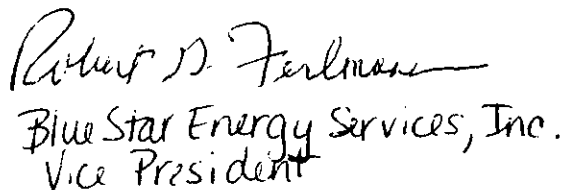 Robert D.
BlueStar Energy Services, Inc.
Vice President